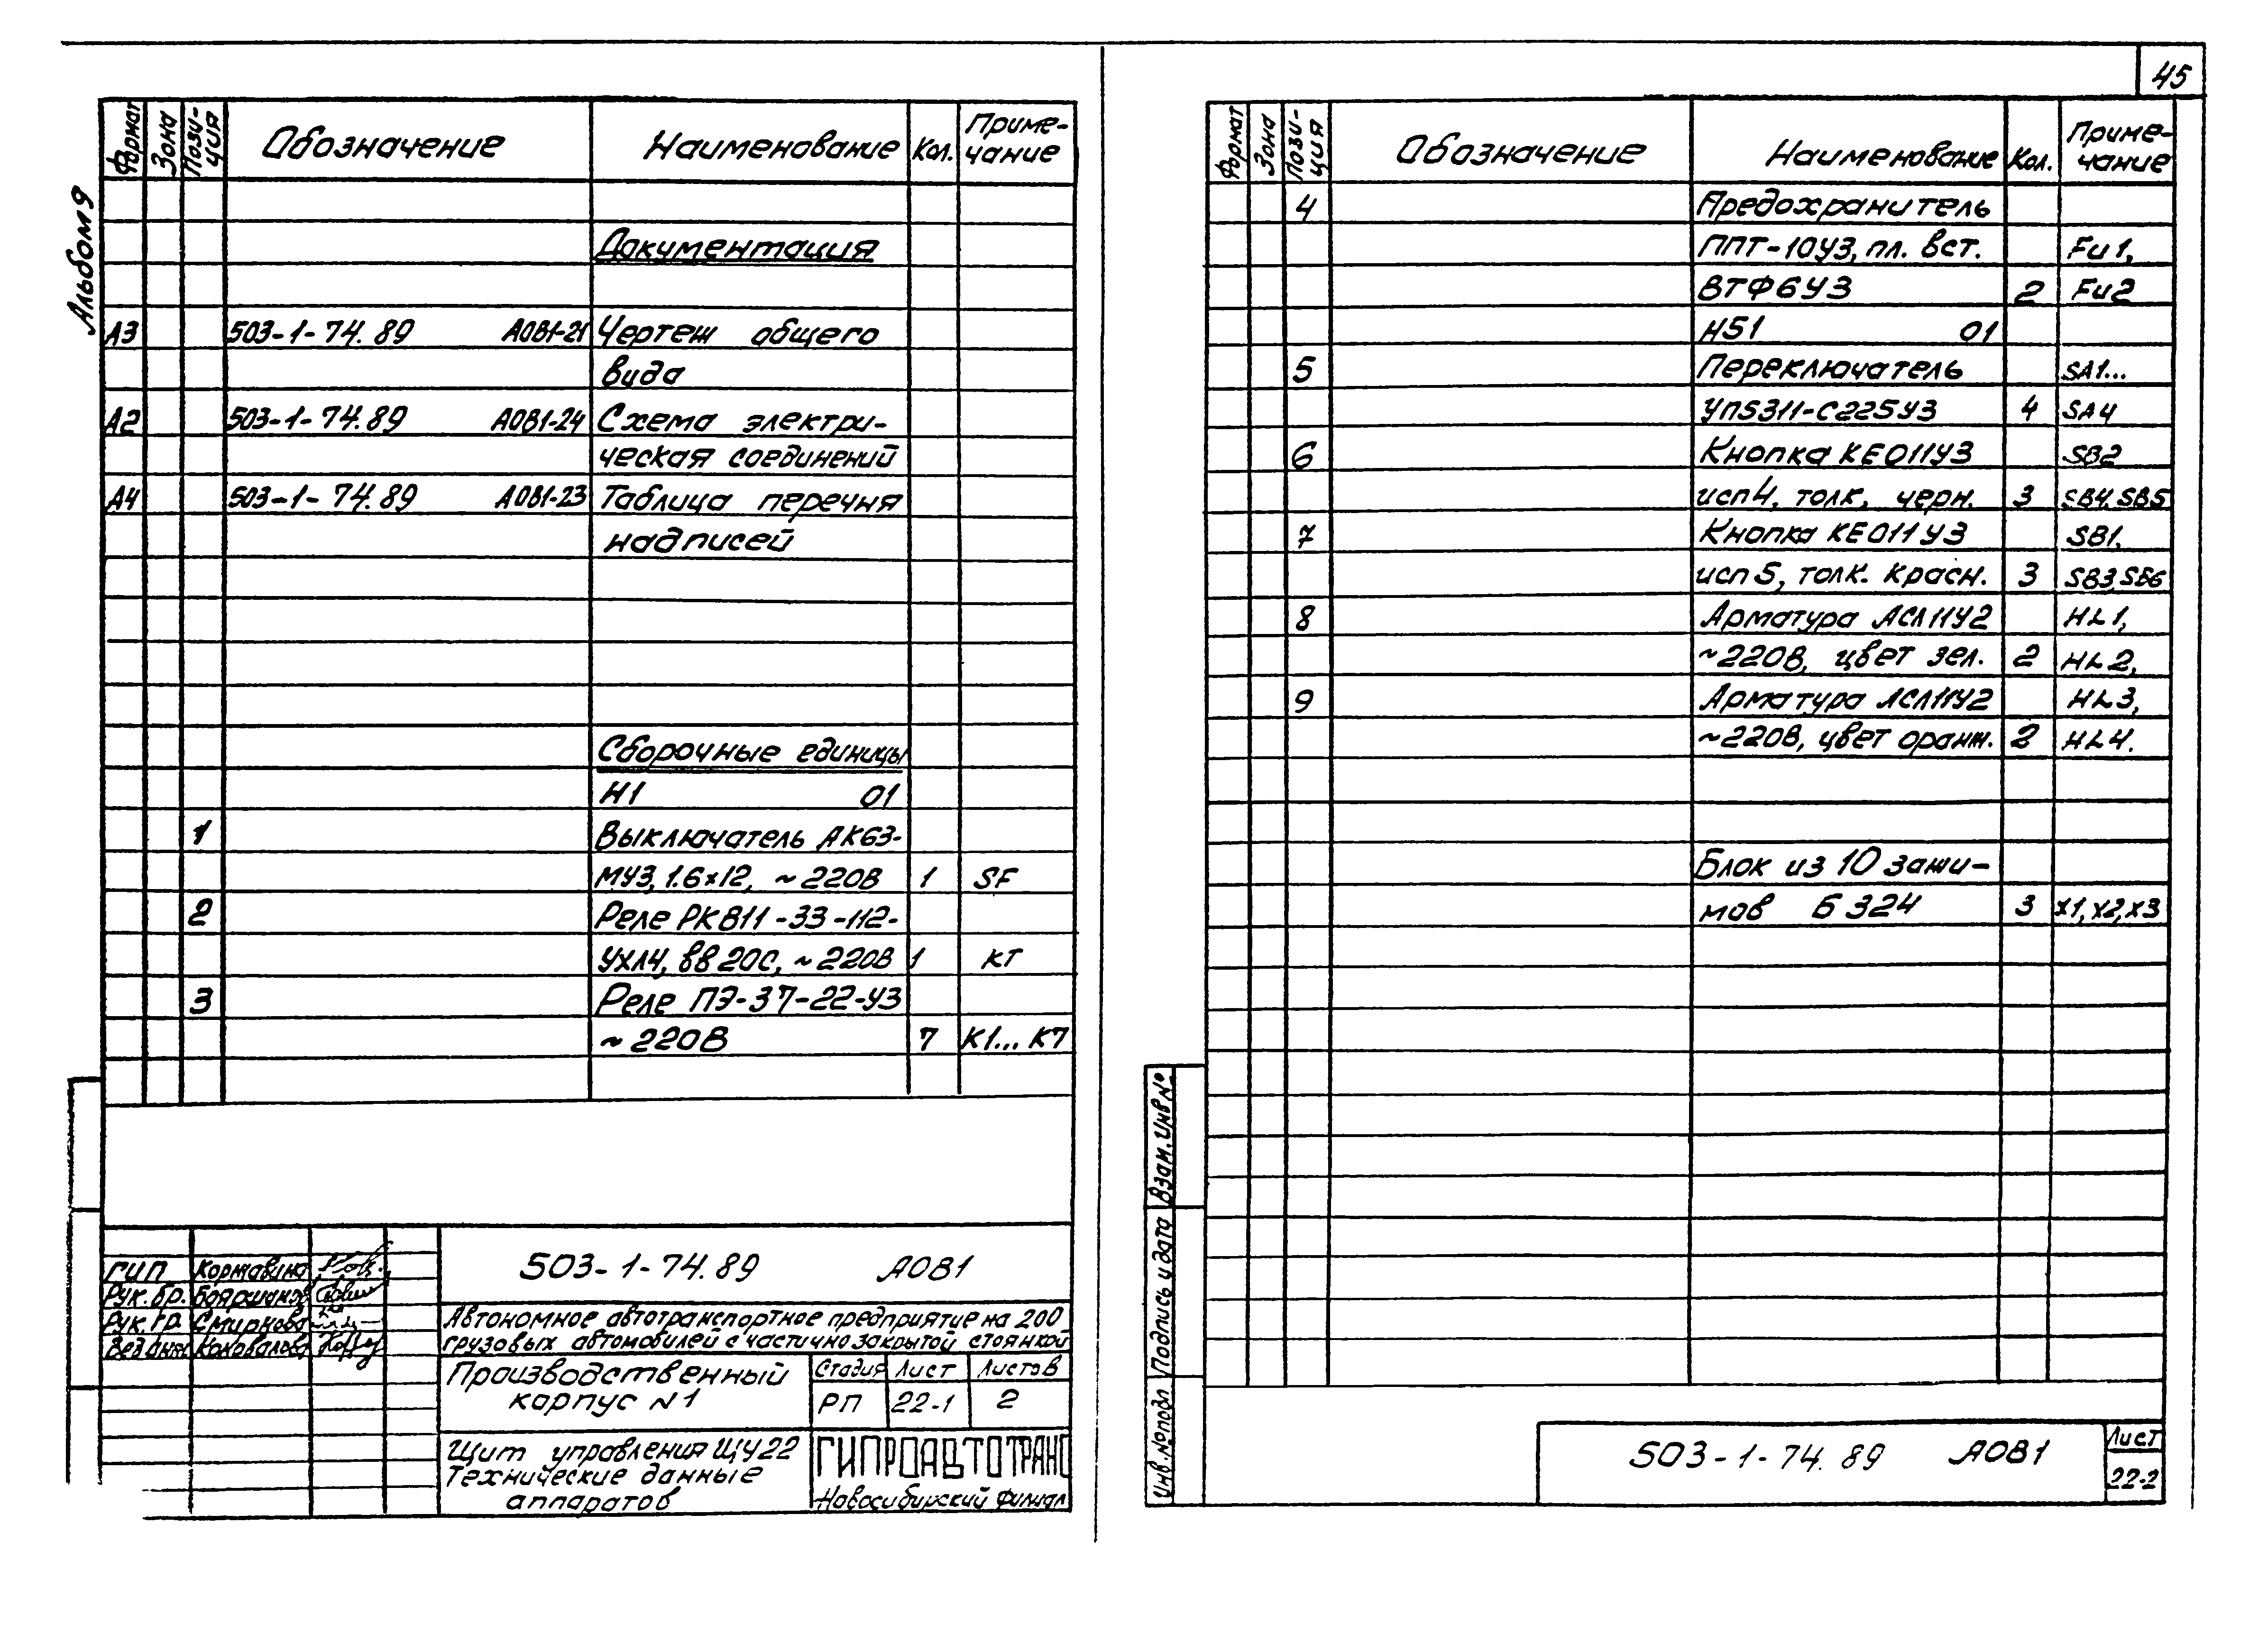 45
Альбом 9
Формат Зона Пози-ция Обозначение Наименование Кол. Приме-чание
Документация
А3 503-1-74.89 АОВ1-21 Чертеж общего
вида
А2 503-1-74.89 АОВ1-24 Схема электри-
ческая соединений
А4 503-1-74.89 АОВ1-23 Таблица перечня
надписей
Сборочные единицы
Н1 01
1 Выключатель АК63-
МУ3, 1.6х12, ~220В 1 SF
2 Реле РКВ11-33-112-
УХЛ4, вв 20с, ~220В 1 КТ
3 Реле ПЭ-37-22-У3
~220В 7 К1...К7
ГИП Коржавина
Рук. бр.
Рук. гр. Смирнова
Вед. инж. Коновалова
503-1-74.89 АОВ1
Автономное автотранспортное предприятие на 200
грузовых автомобилей с частично закрытой стоянкой
Производственный
корпус №1
Стадия Лист Листов
РП 22-1 2
Щит управления ЩУ22
Технические данные
аппаратов
ГИПРОАВТОТРАНС
Новосибирский филиал
Формат Зона Пози-ция Обозначение Наименование Кол. Приме-чание
4 Предохранитель
ППТ-10У3, пл. вст. Fu1,
ВТФ6У3 2 Fu2
Н51 01
5 Переключатель SA1...
УП5311-С225У3 4 SA4
6 Кнопка КЕ011У3 SB2
исп4, толк, черн. 3 SB4. SB5
7 Кнопка КЕ011У3 SB1,
исп 5, толк. красн. 3 SB3, SB6
8 Арматура АСЛ11У2 HL1,
~220В, цвет зел. 2 HL2,
9 Арматура АСЛ11У2 HL3,
~220В, цвет оранж. 2 HL4.
Блок из 10 зажи-
мов Б324 3 Х1, Х2, Х3
Взам. инв №
Подпись и дата
Инв. № подл
503-1-74.89 АОВ1
Лист
22-2